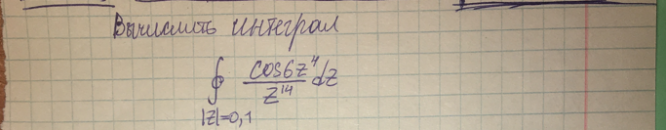 Вычислить интеграл
∮ cos6z⁴/z¹⁴ dz
|z|=0,1